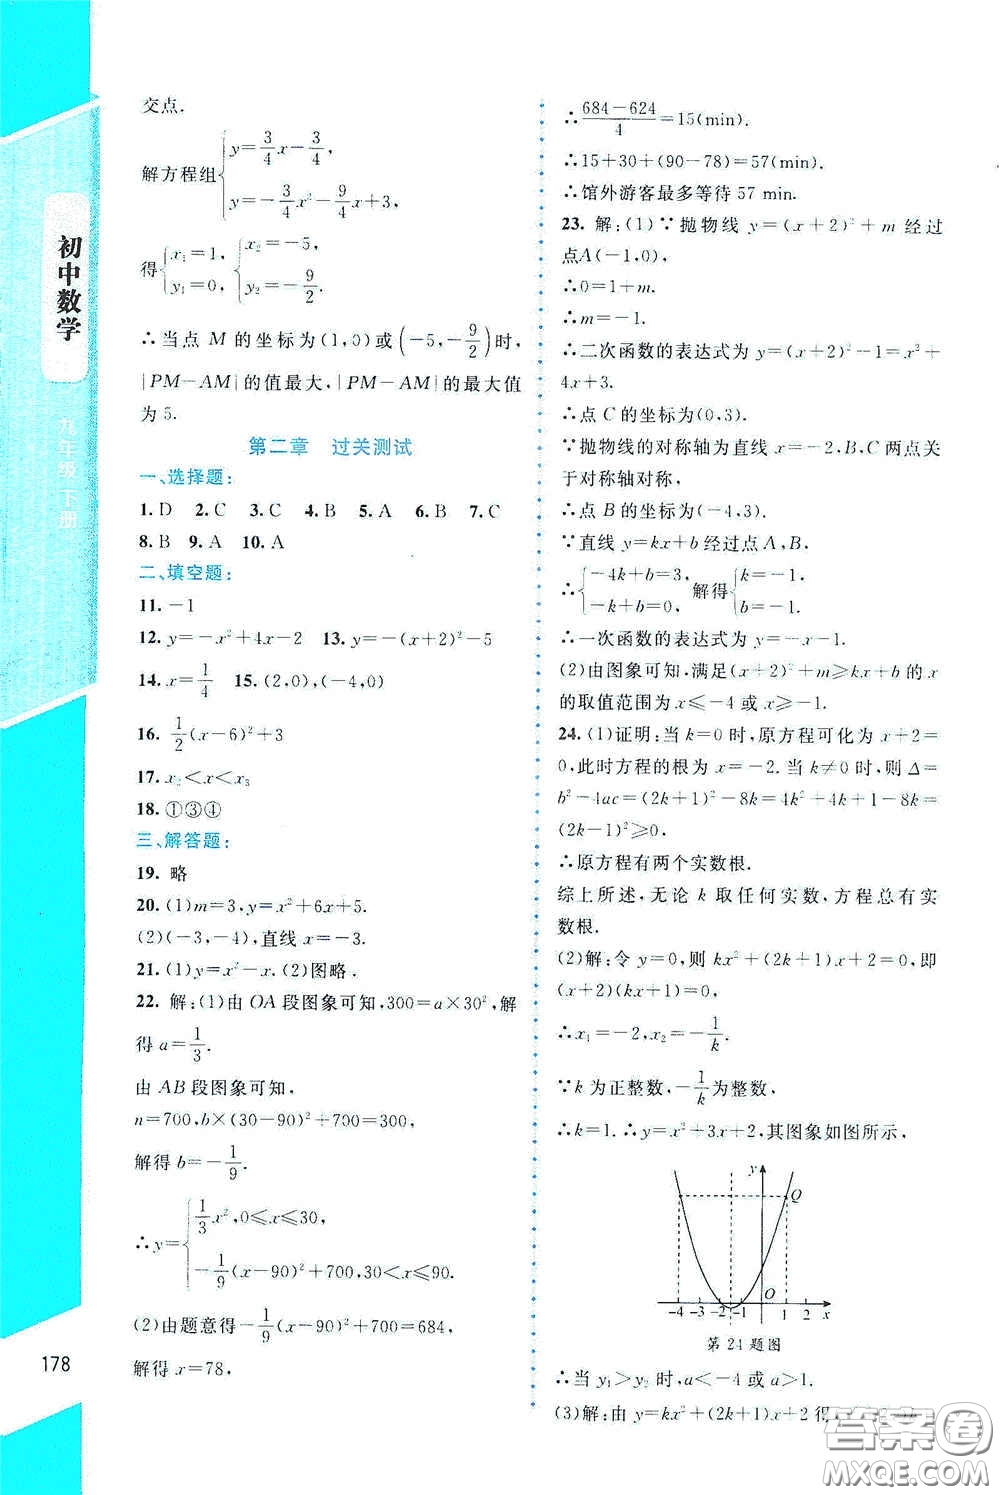 初中数学
九年级 下册
178
交点.
解方程组{y=3/4x-3/4, y=-3/4x²-9/4x+3,
得{x₁=1, y₁=0, {x₂=-5, y₂=-9/2.
∴当点 M 的坐标为(1,0)或(-5,-9/2)时,
|PM-AM|的值最大,|PM-AM|的最大值
为 5.
第二章 过关测试
一、选择题:
1. D 2. C 3. C 4. B 5. A 6. B 7. C
8. B 9. A 10. A
二、填空题:
11. -1
12. y=-x²+4x-2 13. y=-(x+2)²-5
14. x=1/4 15. (2,0),(-4,0)
16. 1/2(x-6)²+3
17. x₂<x<x₃
18. ①③④
三、解答题:
19. 略
20. (1)m=3,y=x²+6x+5.
(2)(-3,-4),直线 x=-3.
21. (1)y=x²-x. (2)图略.
22. 解:(1)由 OA 段图象可知,300=a×30²,解
得 a=1/3.
由 AB 段图象可知,
n=700,b×(30-90)²+700=300,
解得 b=-1/9.
∴y={1/3x²,0≤x≤30, -1/9(x-90)²+700,30<x≤90.
(2)由题意得-1/9(x-90)²+700=684,
解得 x=78,
∴(684-624)/4=15(min).
∴15+30+(90-78)=57(min).
∴馆外游客最多等待 57 min.
23. 解:(1)∵抛物线 y=(x+2)²+m 经过
点A(-1,0),
∴0=1+m.
∴m=-1.
∴二次函数的表达式为 y=(x+2)²-1=x²+
4x+3.
∴点 C 的坐标为(0,3).
∵抛物线的对称轴为 x=-2,B,C 两点关
于对称轴对称,
∴点 B 的坐标为(-4,3).
∵直线 y=kx+b 经过点 A,B.
∴{-4k+b=3, -k+b=0, 解得{k=-1, b=-1.
∴一次函数的表达式为 y=-x-1.
(2)由图象可知,满足(x+2)²+m≥kx+b 的 x
的取值范围为 x≤-4 或 x≥-1.
24. (1)证明:当 k=0 时,原方程可化为 x+2=
0,此时方程的根为 x=-2. 当 k≠0 时,则 Δ=
b²-4ac=(2k+1)²-8k=4k²+4k+1-8k=
(2k-1)²≥0.
∴原方程有两个实数根.
综上所述,无论 k 取任何实数,方程总有实
数根.
(2)解:令 y=0,则 kx²+(2k+1)x+2=0,即
(x+2)(kx+1)=0,
∴x₁=-2,x₂=-1/k.
∵k 为正整数,-1/k为整数,
∴k=1. ∴y=x²+3x+2,其图象如图所示,
y
Q
O
-4 -3 -2 -1 1 2 x
第 24 题图
∴当 y₁>y₂时,a<-4 或 a>1.
(3)解:由 y=kx²+(2k+1)x+2 得
答案圈
MXQE.COM